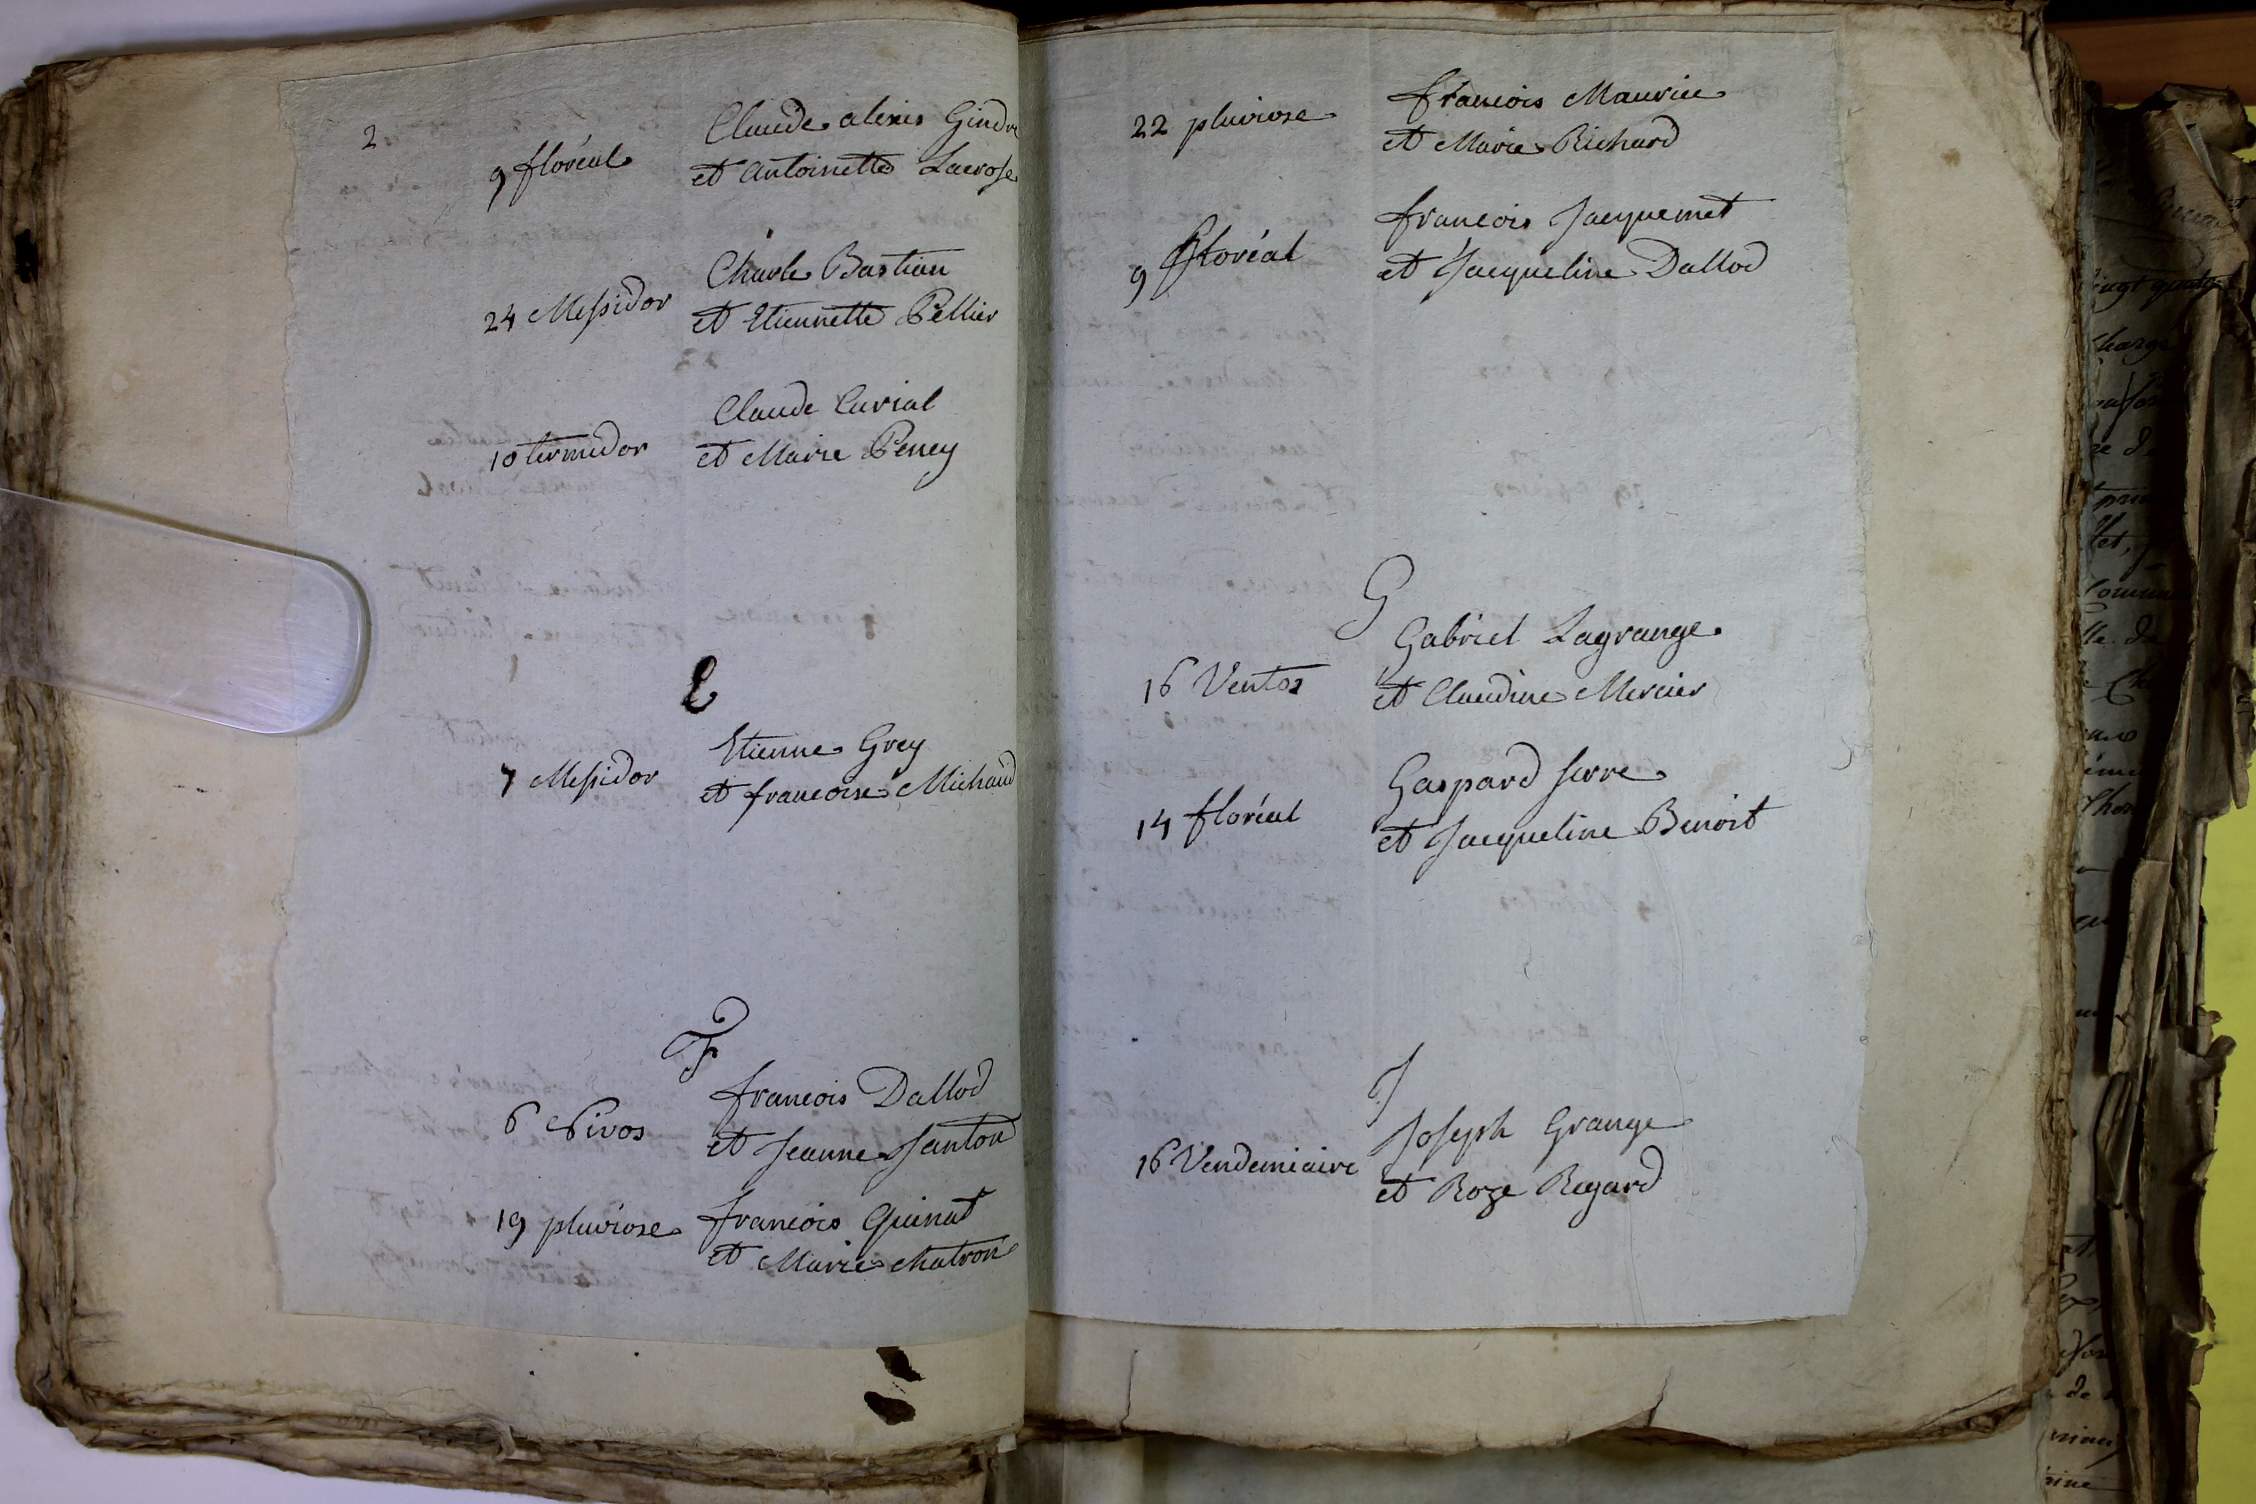 2
Claude alexis Gindre
9 floréal et Antoinette Lacrose
Charle Bastian
24 Messidor et Etiennette Pellier
Claude Curial
10 termidor et Marie Peney
E
Etienne Grey
7 Messidor et francoise Michaud
F
francois Dallod
6 Nivos et Jeanne Janton
19 pluviose francois Guinat
et Marie Matron
francois Maurice
22 pluviose et Marie Richard
francois Jacquemet
9 floréal et Jacqueline Dallod
G
Gabriel Lagrange
16 Ventos et Claudine Mercier
Gaspard serre
14 floréal et Jacqueline Benoit
J
Joseph Grange
16 Vendemiaire et Roze Regard